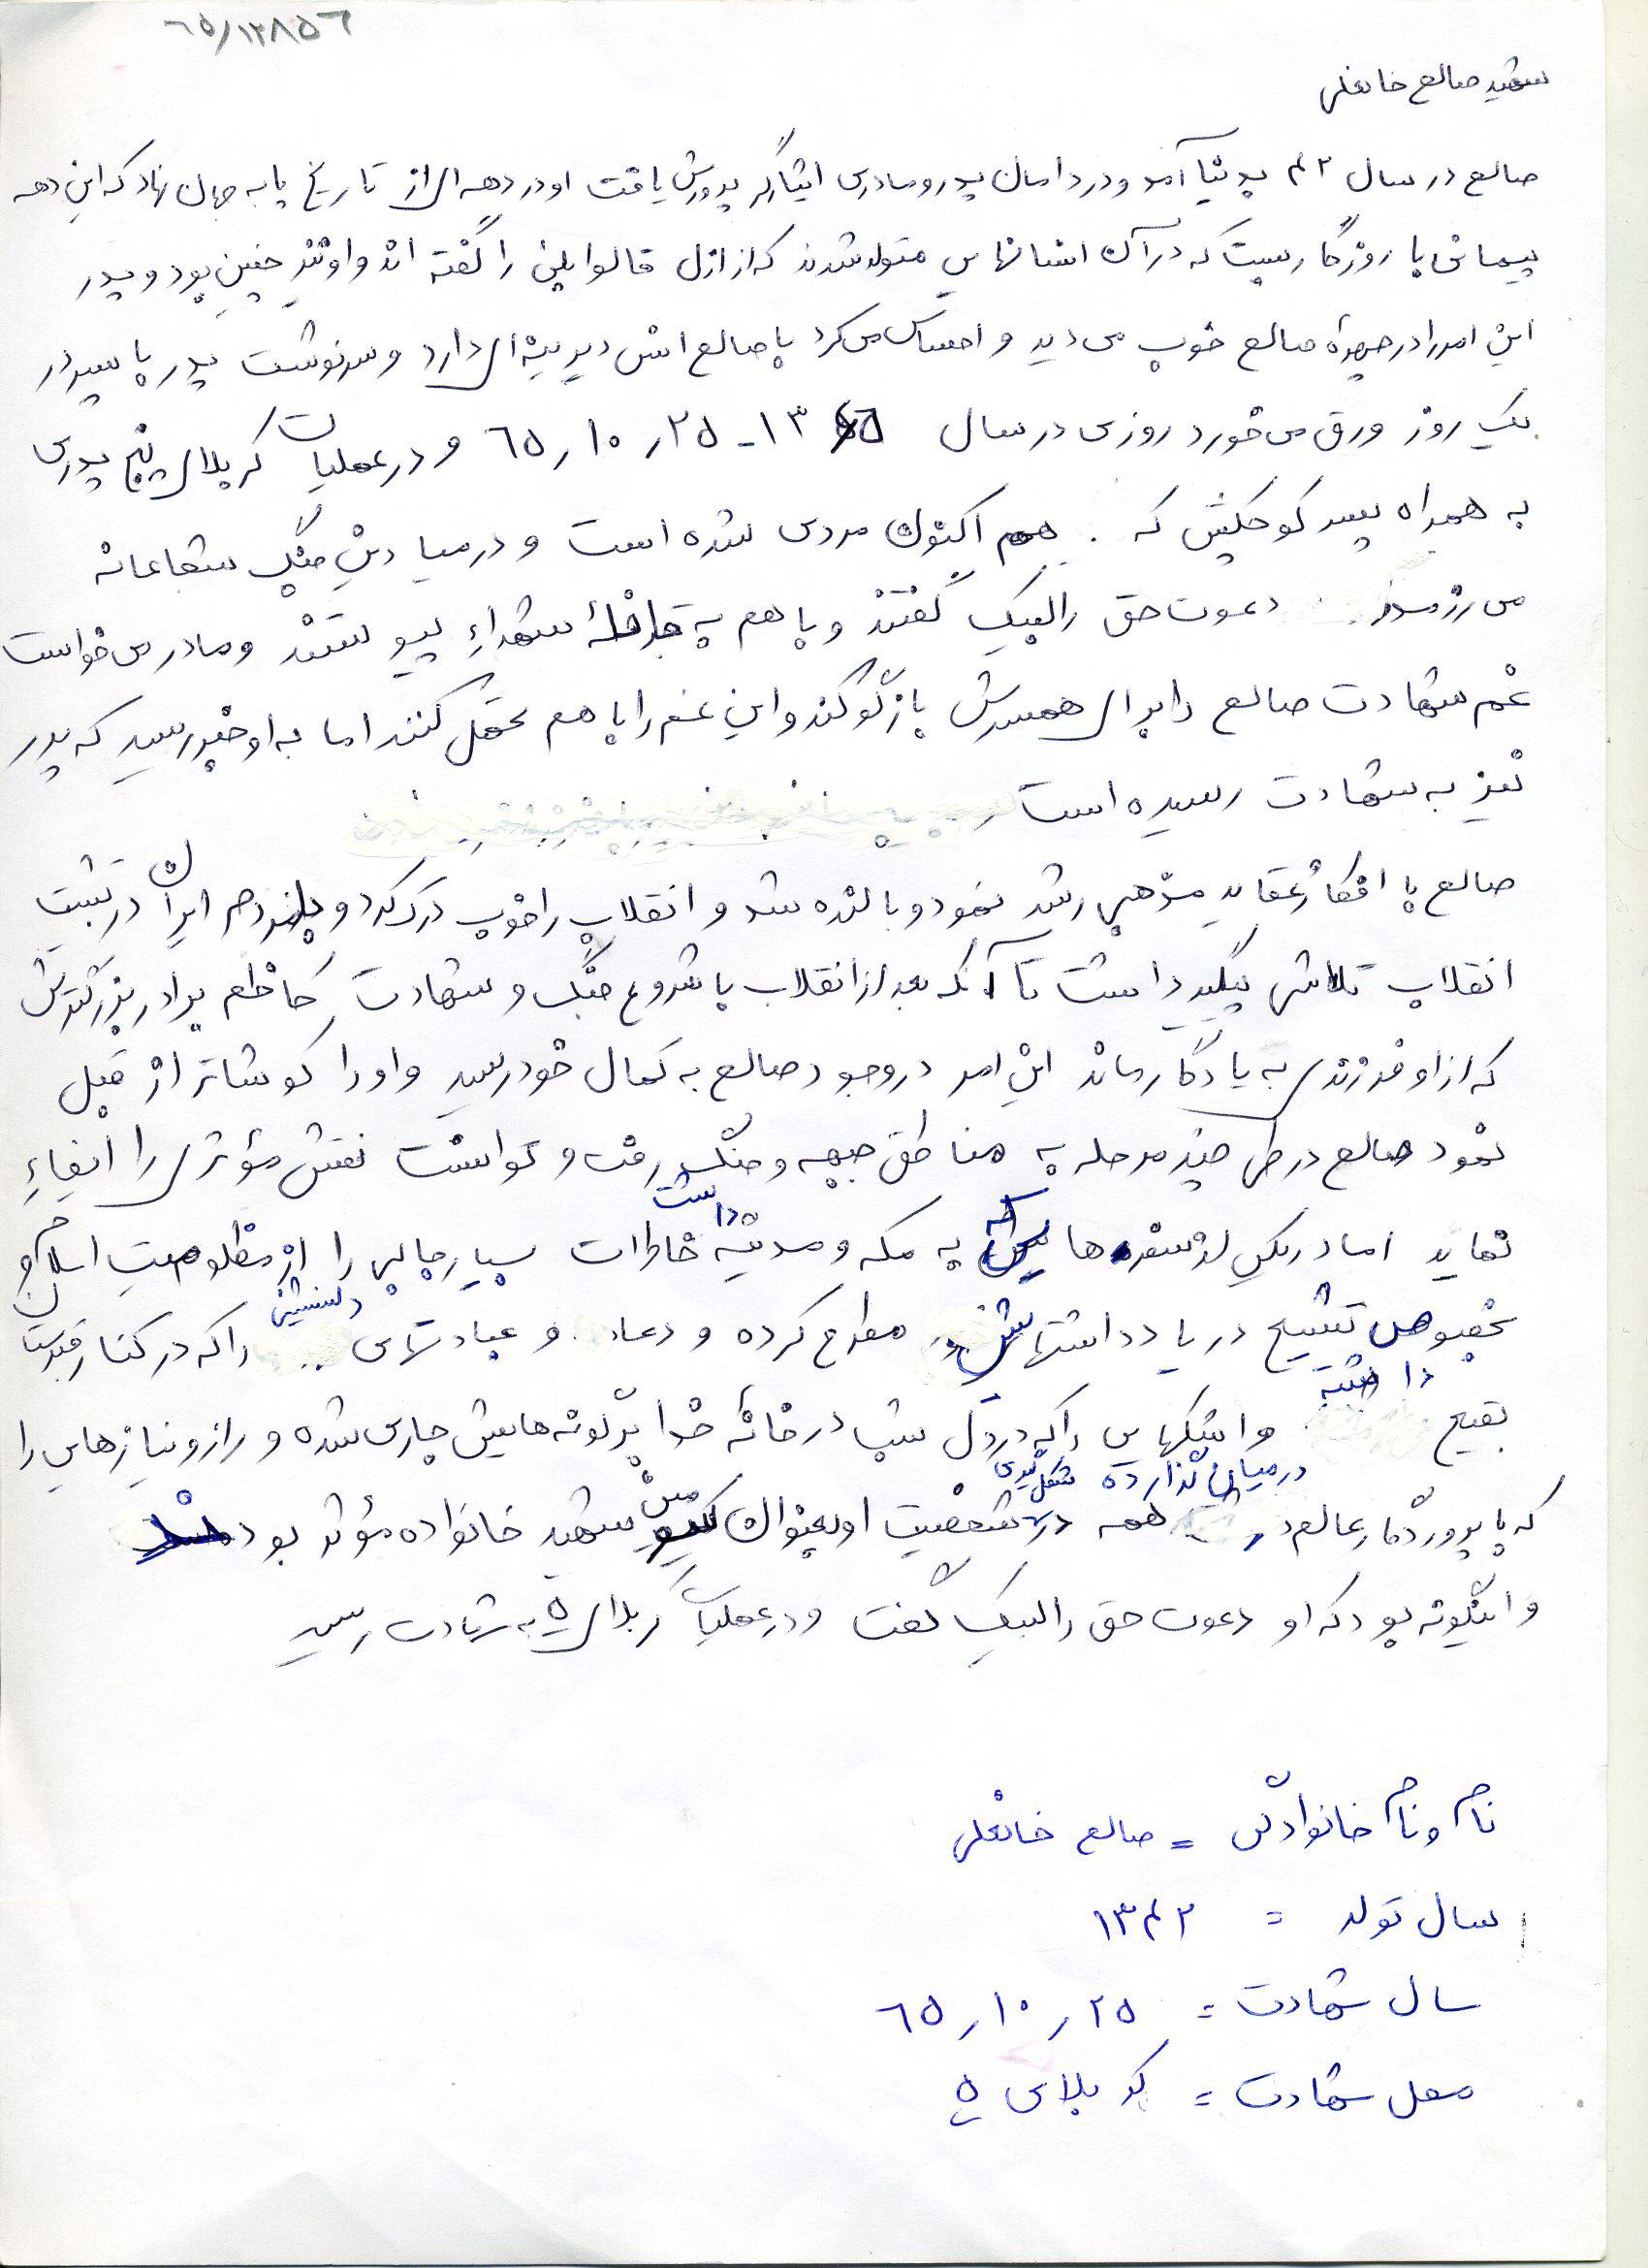 ٦٥/١٣٨٥٦
شهید صالح خانعلی
صالح در سال ۴۲ بدنیا آمد و در دامان پدر و مادری ایثارگر پرورش یافت او در دهه ای از تاریخ پا به جهان نهاد که این دهه
پیمانی با روزگاریست که در آن انسانهایی متولد شدند که از ازل قالوا بلی را گفته اند و او نیز چنین بود و پدر
این امر را در چهرهٔ صالح خوب می دید و احساس می کرد با صالح انس دیرینه ای دارد و سرنوشت پدر با پسر در
یک روز ورق می خورد روزی در سال ۱۳٦٥ - ۲٥ر۱۰ر٦٥ و در عملیات کربلای پنج پدری
به همراه پسر کوچکش که هم اکنون مردی شده است و در میادین جنگ شجاعانه
می رزمد دعوت حق را لبیک گفتند و با هم به قافلهٔ شهداء پیوستند و مادر می خواست
غم شهادت صالح را برای همسرش بازگو کند و این غم را با هم تحمل کنند اما به او خبر رسید که پدر
نیز به شهادت رسیده است
صالح با افکار عقاید مذهبی رشد نمود و بالنده شد و انقلاب را خوب درک کرد و مردم ایران در تثبیت
انقلاب تلاش پیگیر داشت تا آنکه بعد از انقلاب با شروع جنگ و شهادت کاظم برادر بزرگترش
که از او فرزندی به یادگار ماند این امر در وجود صالح به کمال خود رسید و او را کوشاتر از قبل
نمود صالح در طی چند مرحله به مناطق جبهه و جنگ رفت و توانست نقش مؤثری را ایفاء
نماید اما در یکی از سفرها که به مکه و مدینه داشت خاطرات بسیار جالبی را از مظلومیت اسلام و
بخصوص تشیع در یادداشتهایش مطرح کرده و دعا و عبادتهای دلنشینی را که در کنار قبرستان
بقیع داشته و اشکهایی را که در دل شب در خانه خدا بر گونه هایش جاری شده و راز و نیازهایی را
که با پروردگار عالم در میان گذارده همه در شکل گیری شخصیت او بعنوان شهید خانواده مؤثر بود
و اینگونه بود که او دعوت حق را لبیک گفت و در عملیات کربلای ۵ به شهادت رسید
نام و نام خانوادگی = صالح خانعلی
سال تولد = ۱۳۴۲
سال شهادت = ۲٥ر۱۰ر٦٥
محل شهادت = کربلای ٥